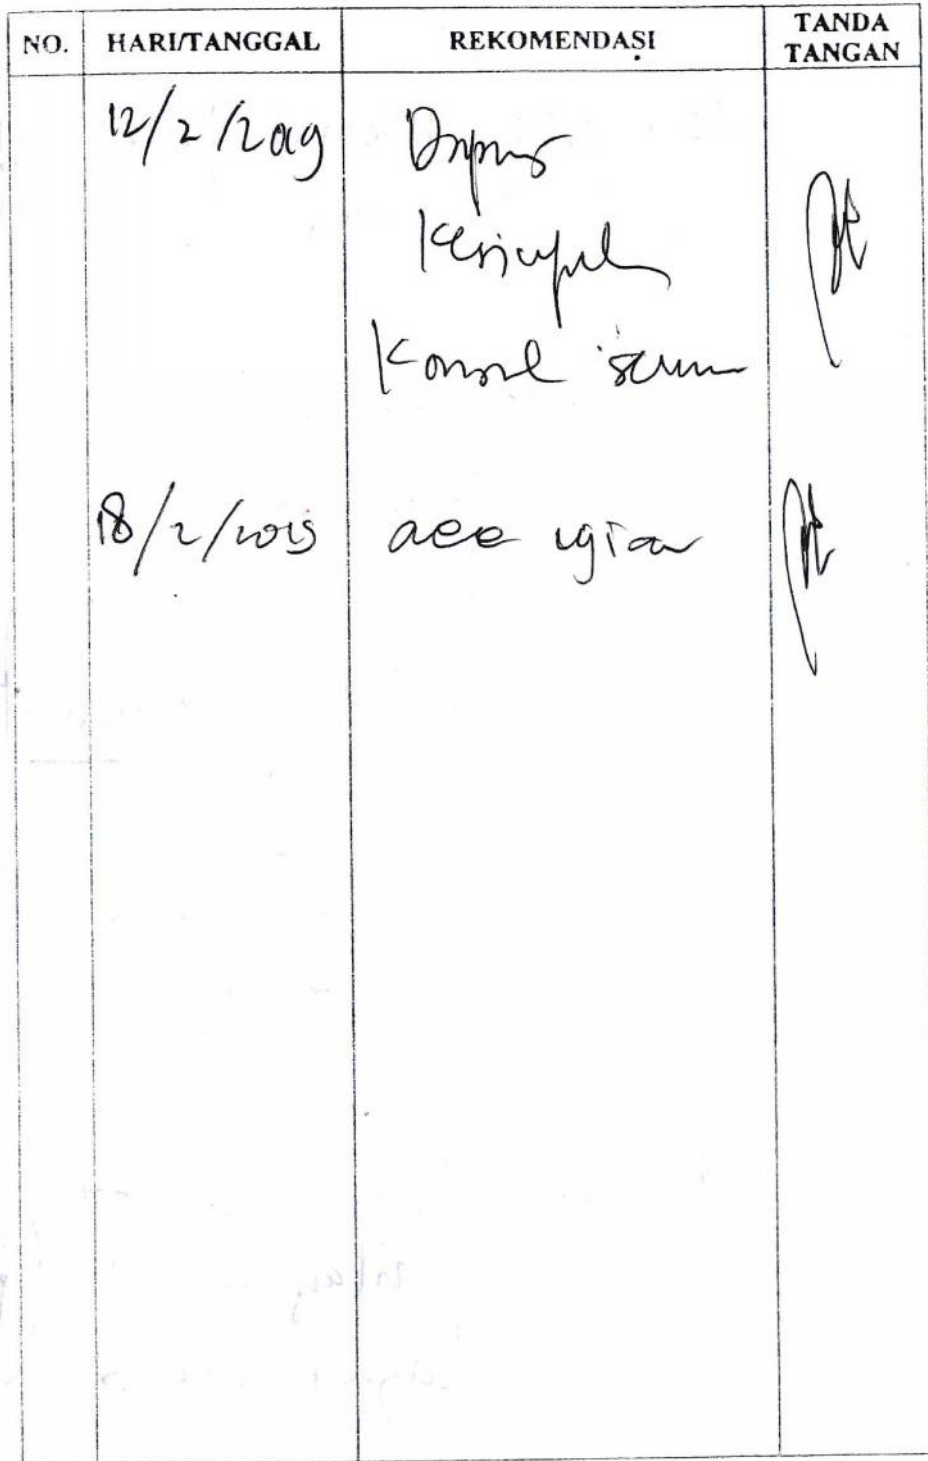 NO. HARI/TANGGAL REKOMENDASI TANDA TANGAN
12/2/2019
Kesimpulan
Konsul
18/2/2019 acc ujian